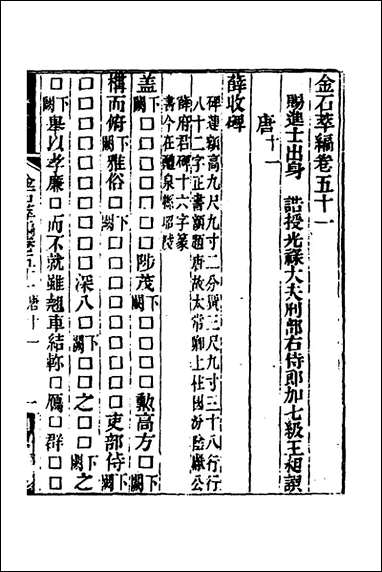 金石萃編卷五十一
賜進士出身 誥授光祿大夫刑部右侍郎加七級王昶譔
唐十一
薛收碑
碑連額高九尺九寸二分寬三尺九寸三十八行行
八十二字正書額題唐故太常卿上柱國汾陰獻公
薛府君碑十六字篆
書今在醴泉縣昭陵
蓋下闕□□□□□□陟茂下闕□□□□勲高方□□下闕
構而俯下闕雅俗□□下闕□□□□□□□□吏部侍下闕
□□□□□□□□深八□□下闕□□□之□□下闕之
□下闕舉以孝廉□而不就雖翹車結軫□鴈□群□□
金石萃編卷五十一 唐十一 一